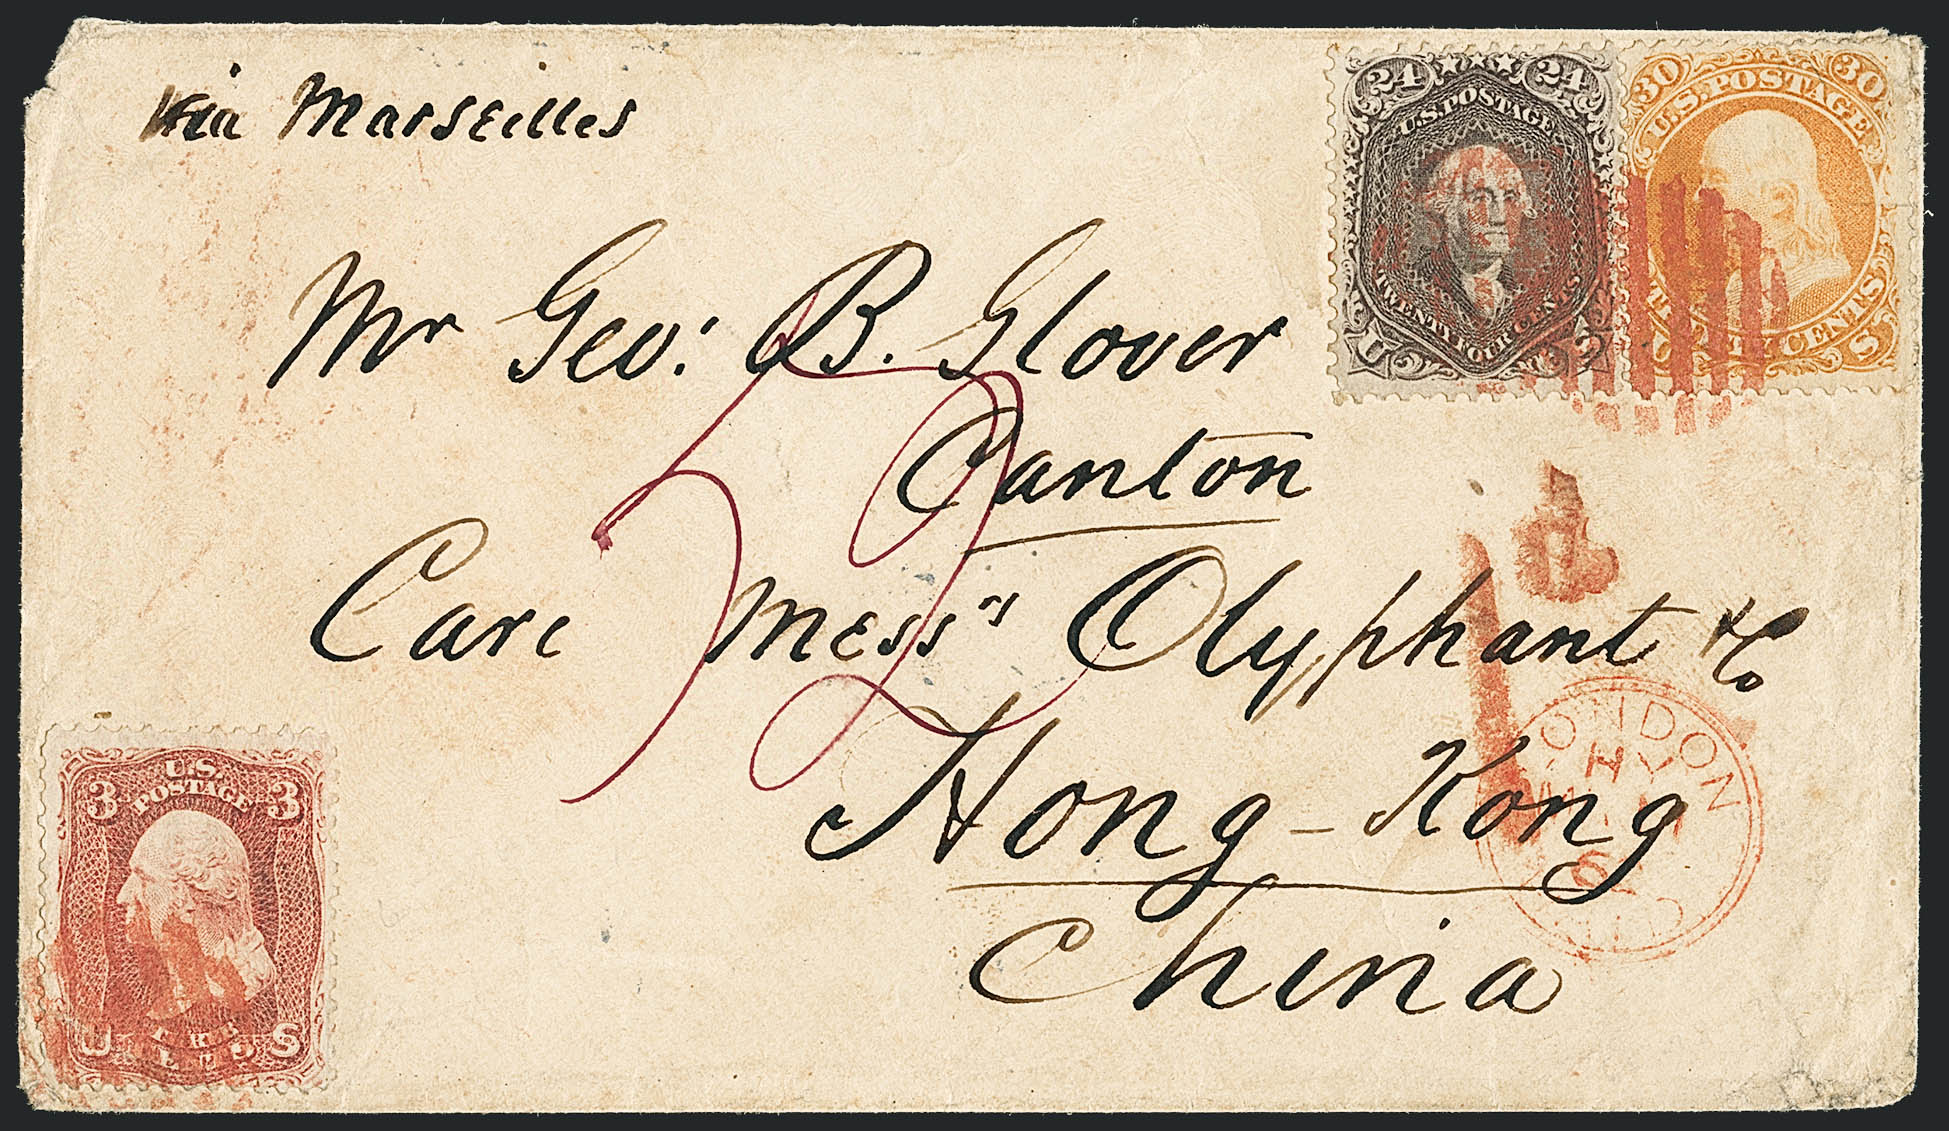 via Marseilles
24 24
U.S. POSTAGE
TWENTY FOUR CENTS
U S
30 30
U.S. POSTAGE
CENTS
S
Mr Geo: B. Glover
Canton
Care Mess^rs Olyphant & Co
Hong-Kong
China
52
1
d
LONDON
PAID
U.S.
POSTAGE
3 3
U S